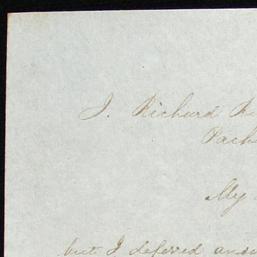 J. Richard
Pach
My
but I deferred answ